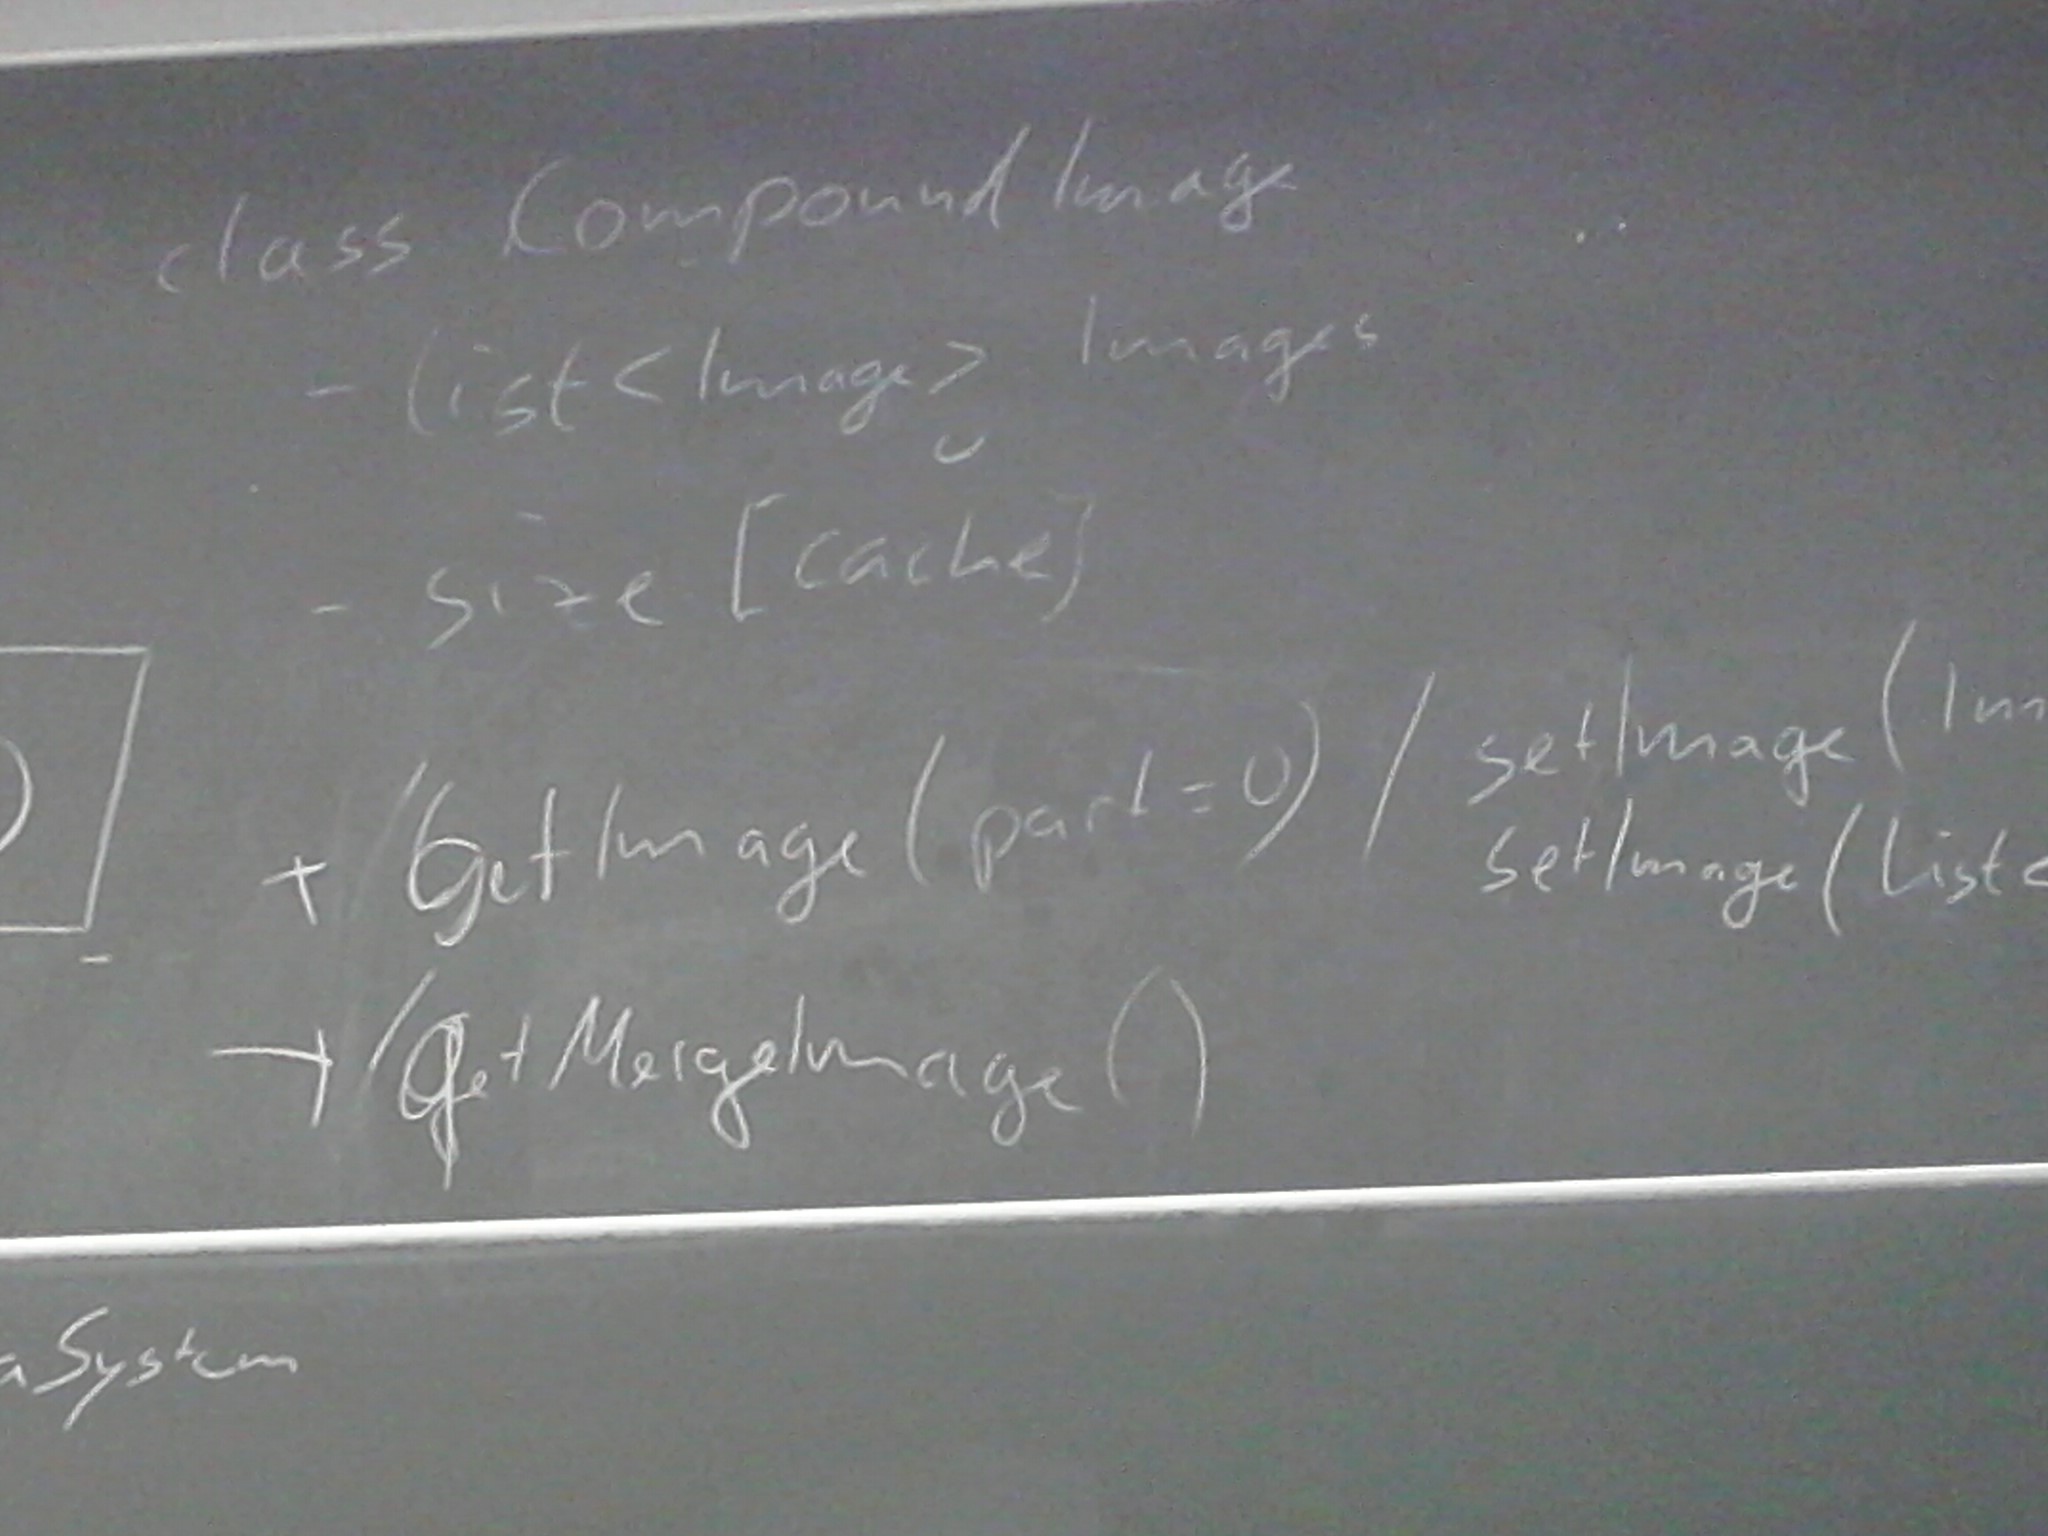 class CompoundImage
- list<Image> Images
- size [cache]
+ GetImage (part=0) / setImage (Im
setImage (List<
+ GetMergeImage ()
aSystem